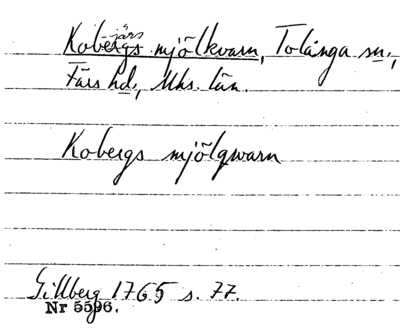 järs
Kobergs mjölkvarn, Tolånga sn.,
Färs hd., Mhs. län.
Kobergs mjölqwarn
Gillberg 1765 s. 77.
Nr 5596.